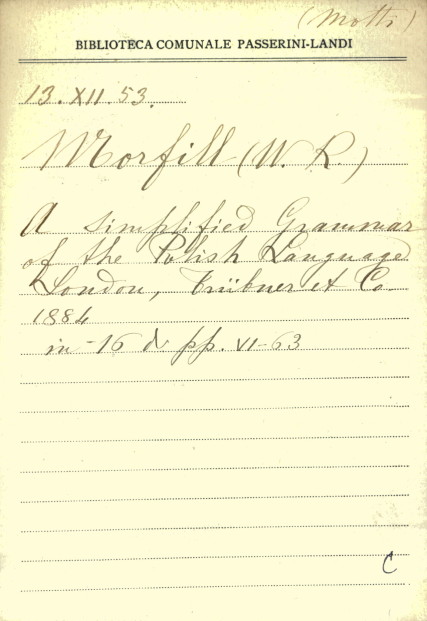 (Motti)
BIBLIOTECA COMUNALE PASSERINI-LANDI
13. XII. 53.
Morfill (W. R.)
A simplified Grammar
of the Polish Language
London, Trübner et Co
1884
in-16 di pp. VI-63
C